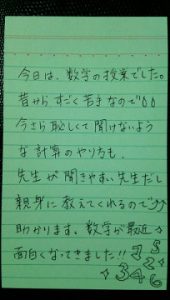 今日は、数学の授業でした。
昔からすごく苦手なので
今さら恥しくて聞けないよう
な計算のやり方も
先生が聞きやすい先生だし
親身に教えてくれるので
助かります。数学が最近
面白くなってきました!!
2 5
2 2
3 4 6